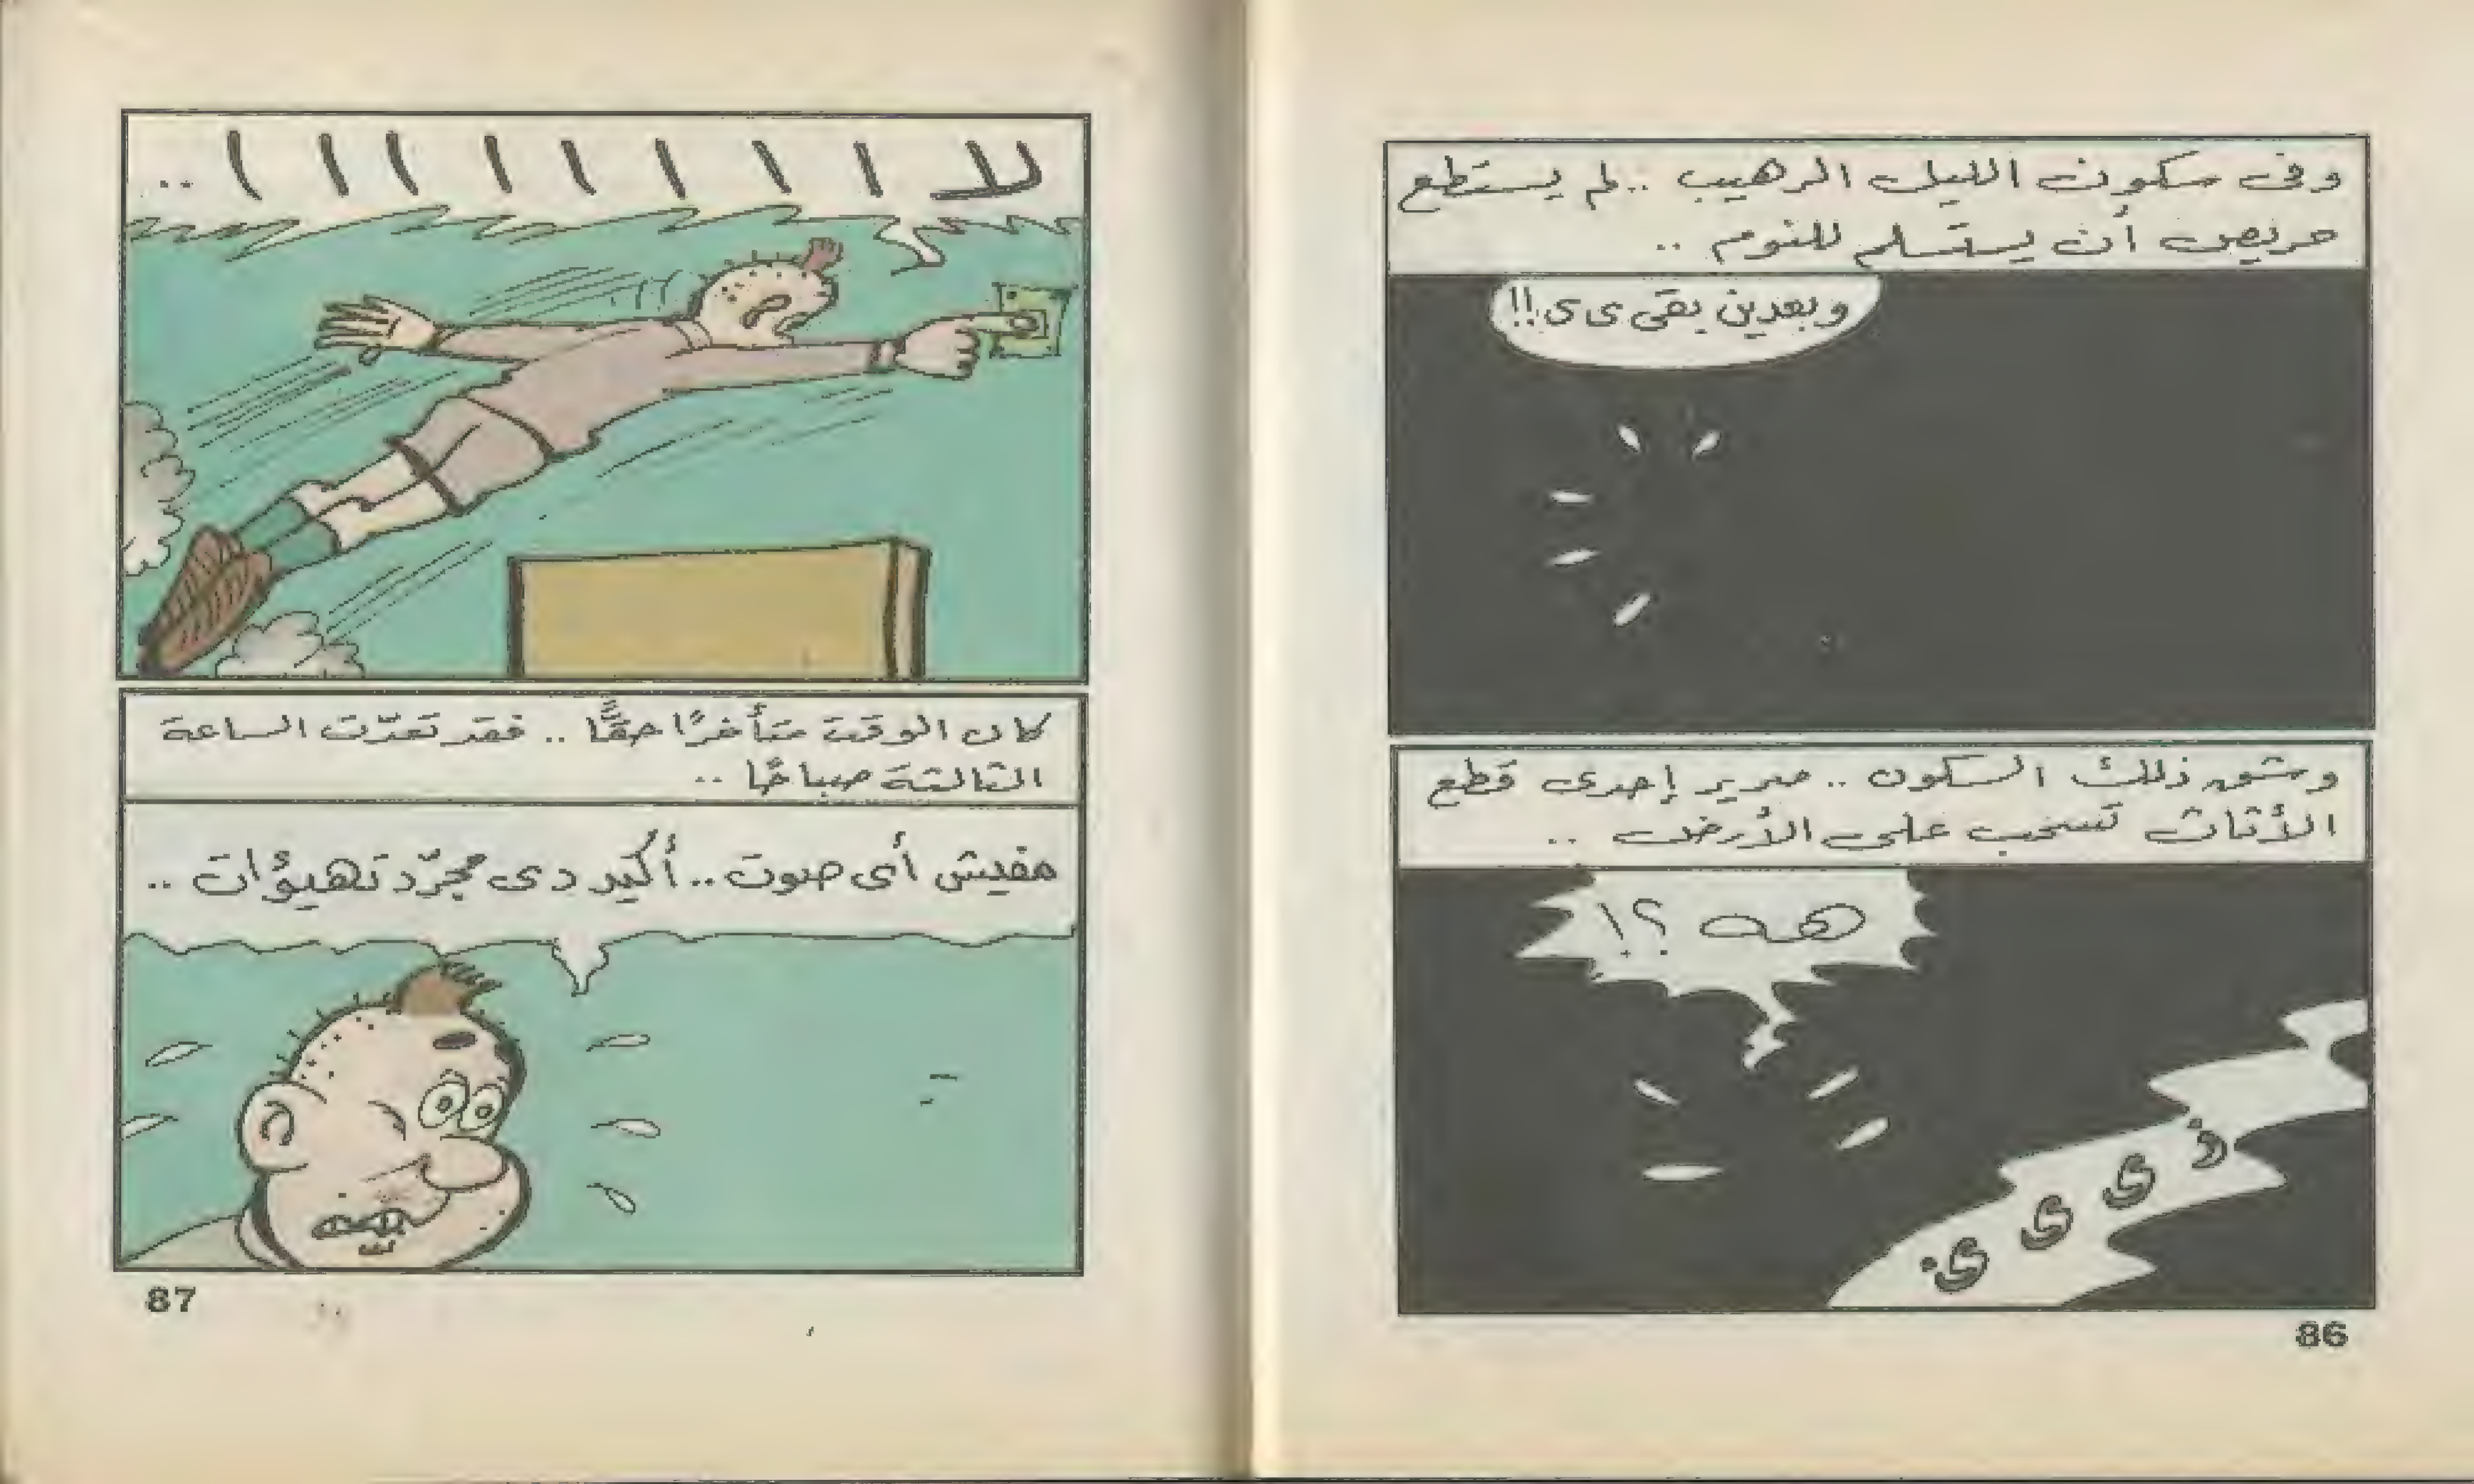 وفى سكون الليل الرهيب .. لم يستطع
حريص أن يستسلم للنوم ..
وبعدين بقى ى ى !!
وشق ذلك السكون .. صرير إحدى قطع
الأثاث تسحب على الأرض ..
هه ؟!
ز ى ى ى.
86
لا ا ا ا ا ا ا ا ا ..
كان الوقت متأخرًا حقًّا .. فقد تعدّت الساعة
الثالثة صباحًا ..
مفيش أى صوت .. أكيد دى مجرّد تهيؤات ..
87